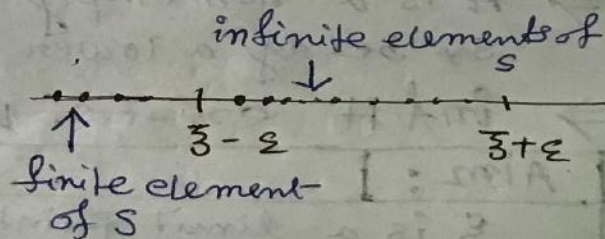 infinite elements of
S
ξ - ε
ξ + ε
finite element
of S